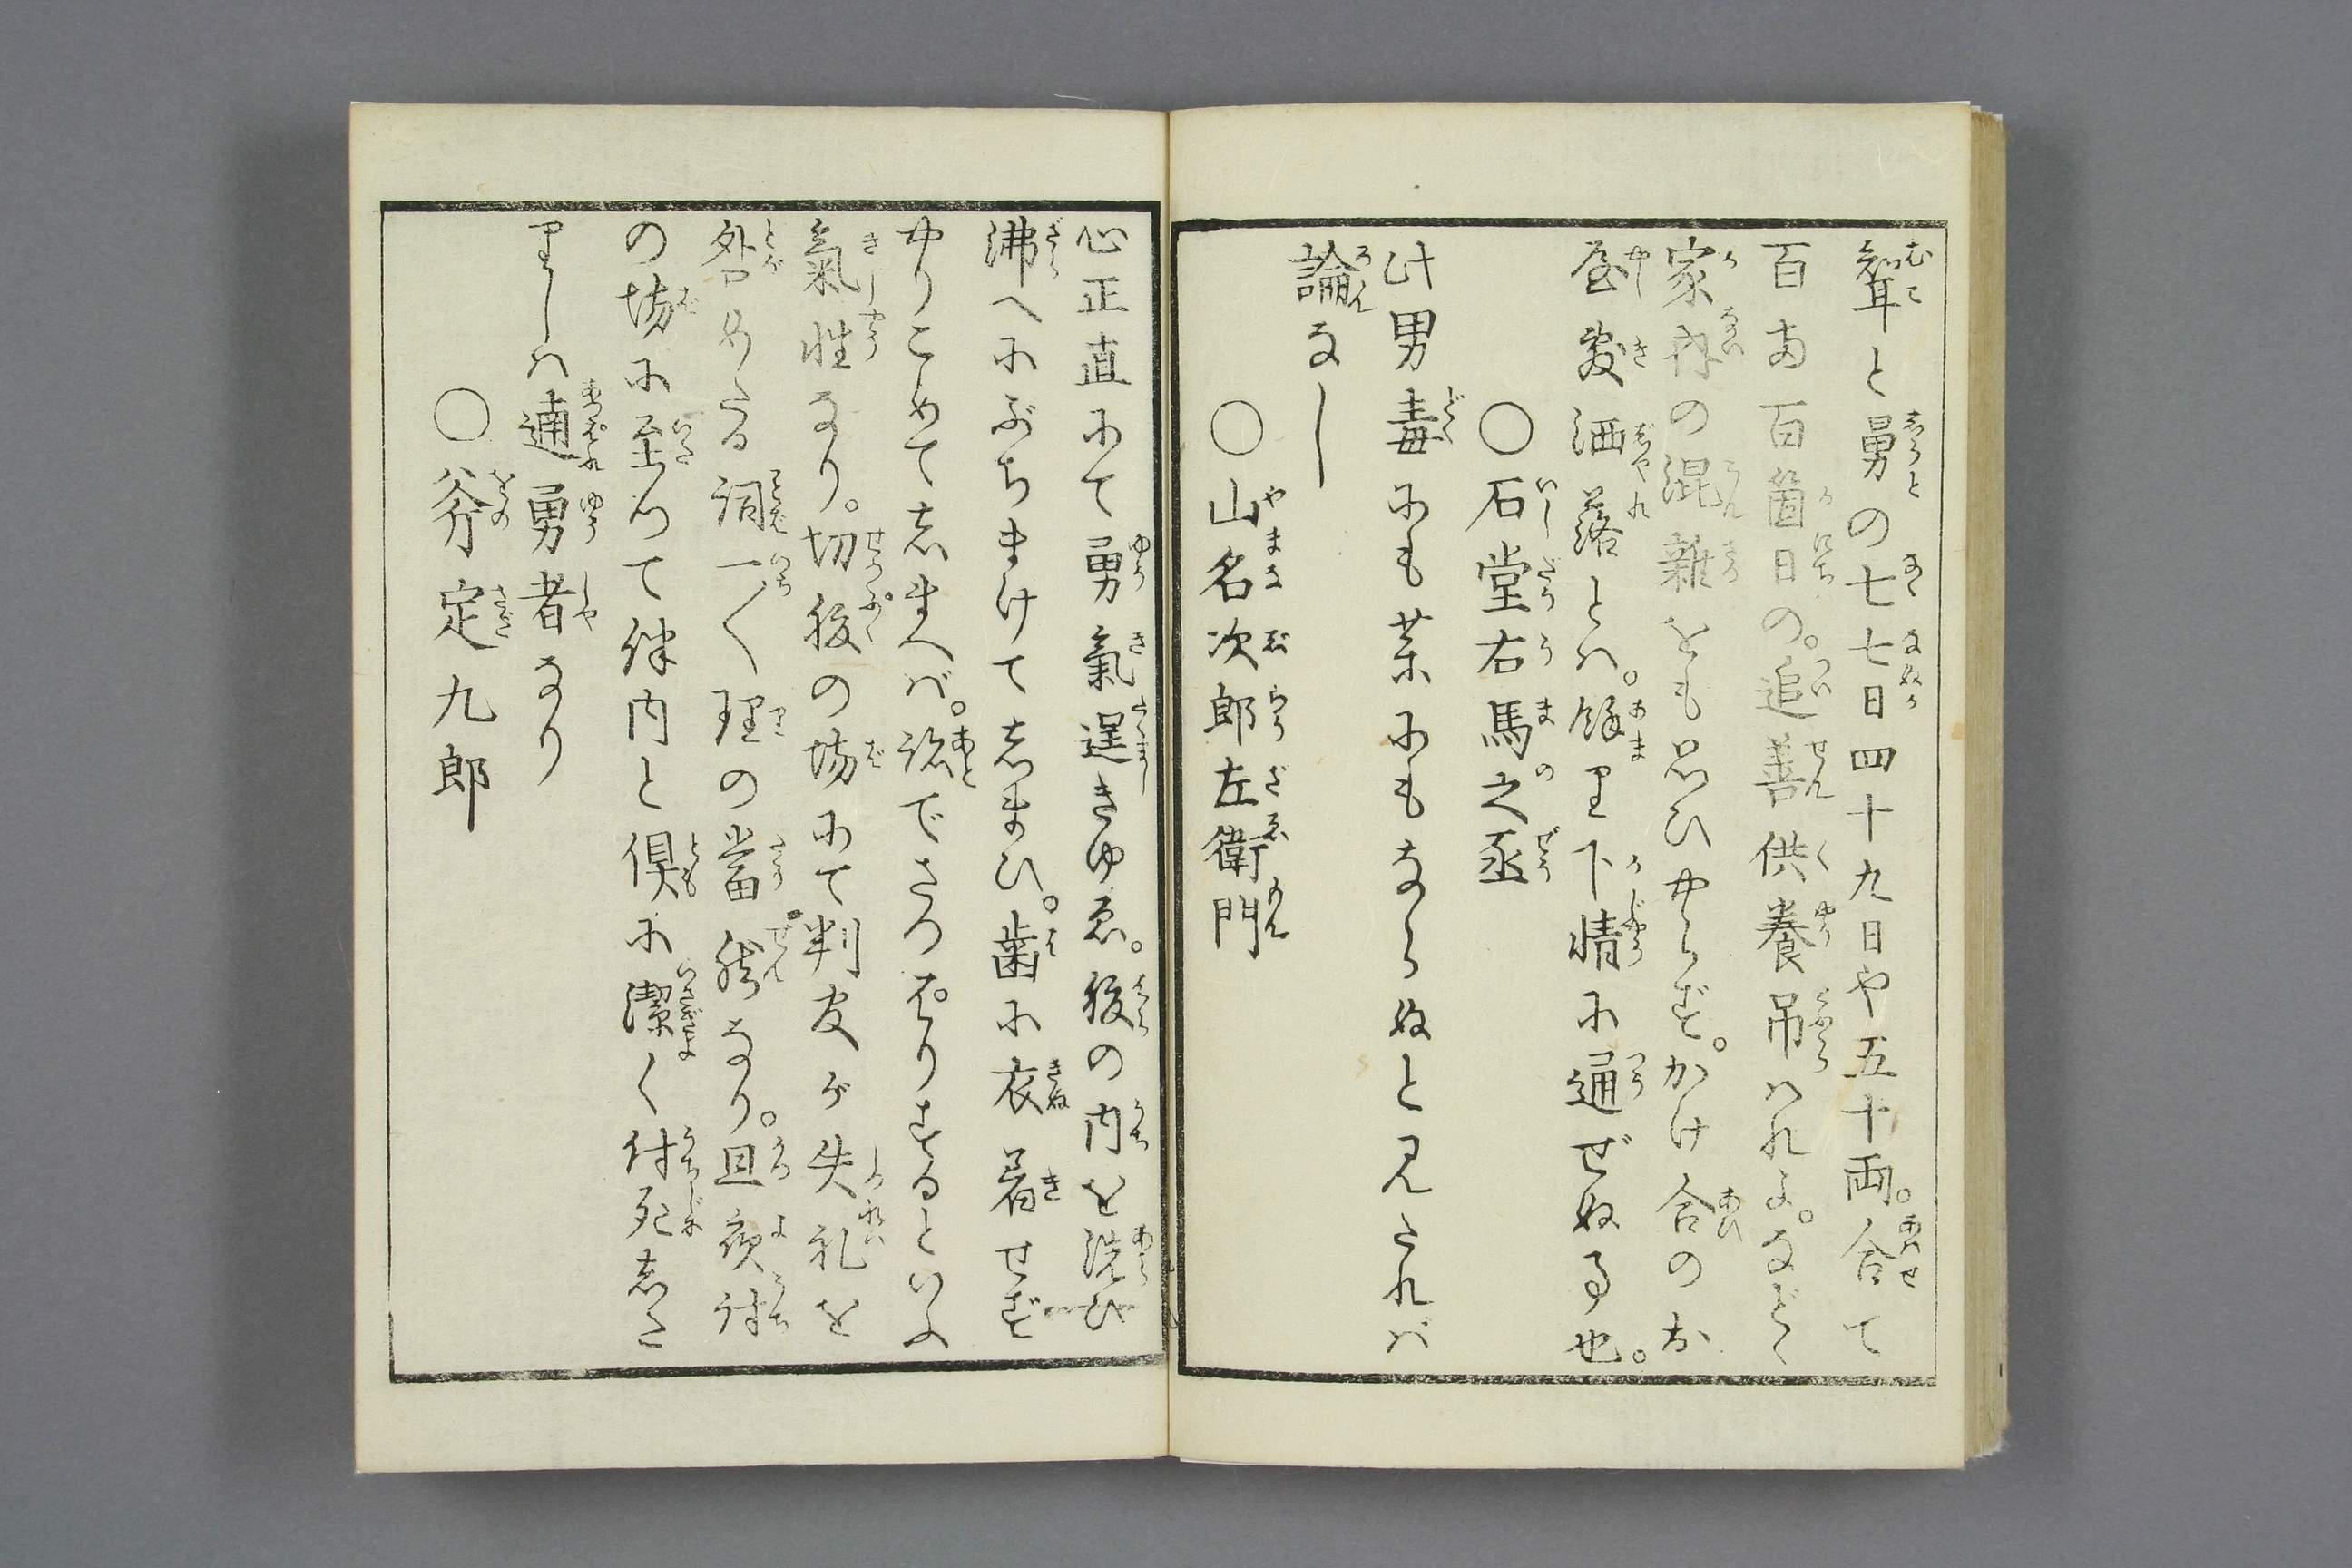 聟と舅の七七日四十九日や五十両。合て
百両百箇日の。追善供養吊はれよ。などゝ
家内の混雑をも思ひやらず。かけ合のお
屋敷洒落とは。餘り下情に通ぜぬ事也。
○石堂右馬之丞
此男毒にも薬にもならぬと見たれば
論なし
○山名次郎左衛門
心正直にて勇氣逞きゆゑ。腹の内を洗ひ
沸へにぶちまけてしまひ。歯に衣着せず
やりこめてしまへば。跡でさつぱりするといふ
氣性なり。切腹の場にて判官が失礼を
咎めたる詞一〱理の當然なり。且夜討
の場に至つて伴内と倶に潔く討死した
りしは遖勇者なり
○斧定九郎